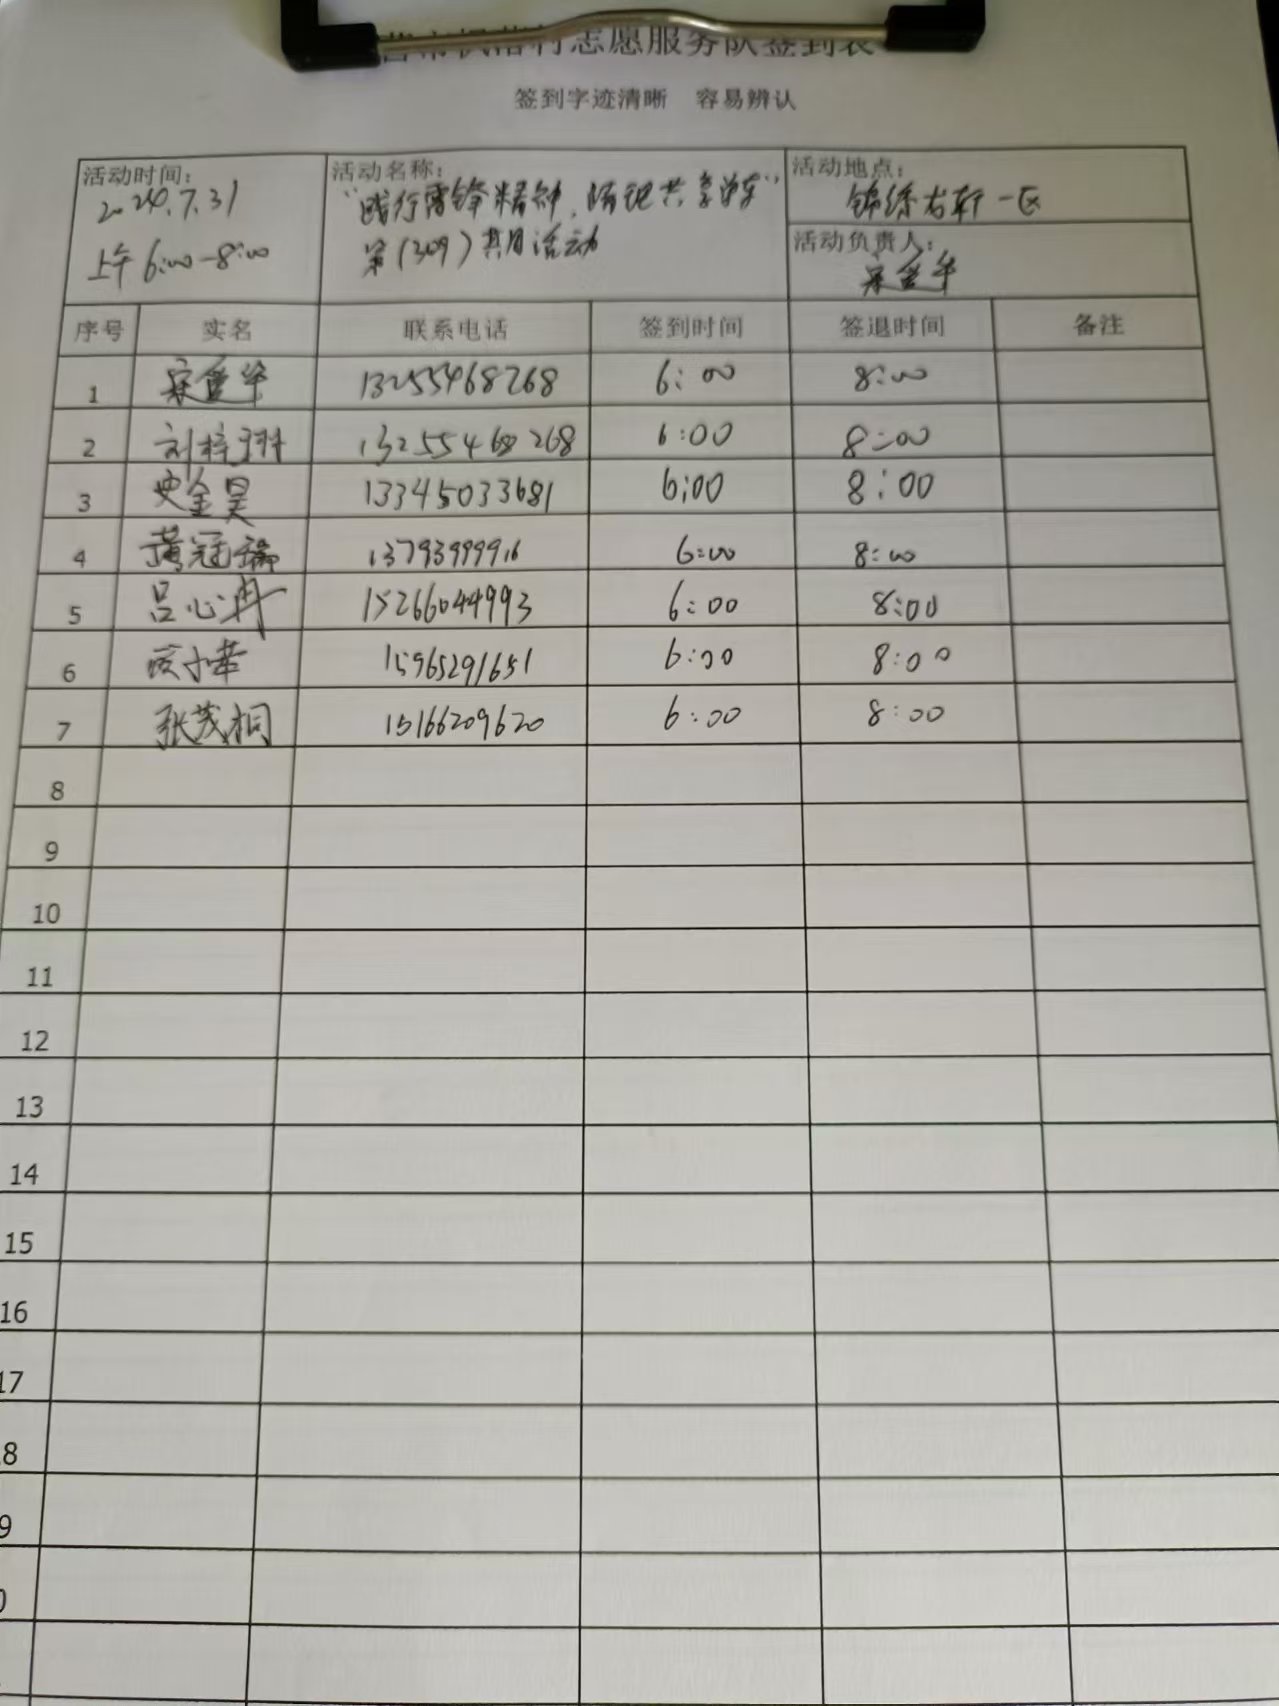 志愿服务队签到表
签到字迹清晰 容易辨认
活动时间:
2024.7.31
上午 6:00-8:00
活动名称:
“践行雷锋精神,随记共享单车”
第(309)共月活动
活动地点:
锦绣龙轩一区
活动负责人:
宋爱华
序号 实名 联系电话 签到时间 签退时间 备注
1 宋爱华 13255468268 6:00 8:00
2 刘梓翔 13255468268 6:00 8:00
3 史金昊 13345033681 6:00 8:00
4 黄冠瑞 13793999916 6:00 8:00
5 吕心冉 15266044993 6:00 8:00
6 15965291651 6:00 8:00
7 张茂桐 15166209620 6:00 8:00
8
9
10
11
12
13
14
15
16
17
8
9
0